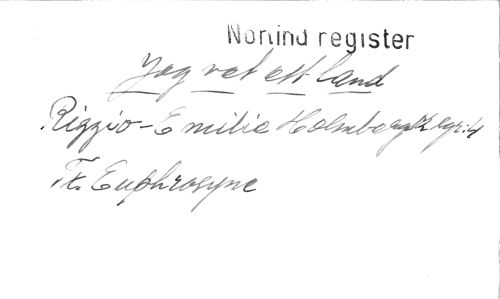 Norlind register
Jag vet ett land
Riggio-Emilie Holmberg
Tr. Euphrosyne